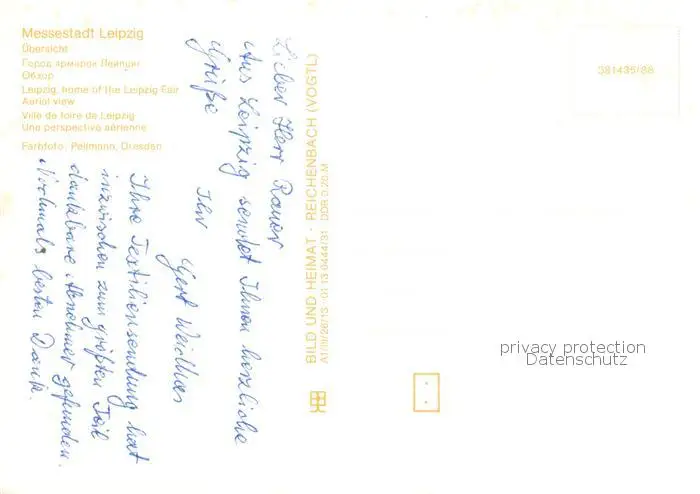 Messestadt Leipzig
Übersicht
Город ярмарок Лейпциг
Обзор
Leipzig, home of the Leipzig Fair
Aerial view
Ville de foire de Leipzig
Une perspective aérienne
Farbfoto: Pellmann, Dresden
Lieber Herr Rauer
Aus Leipzig sendet Ihnen herzliche
Grüße
Ihr
Gert
Ihre Textiliensendung hat
inzwischen zum größten Teil
dankbare Abnehmer gefunden.
Nochmals besten Dank.
BILD UND HEIMAT · REICHENBACH (VOGTL)
A1/III/26/13 01 13 0444/31 DDR 0,20 M
381435/88
privacy protection
Datenschutz